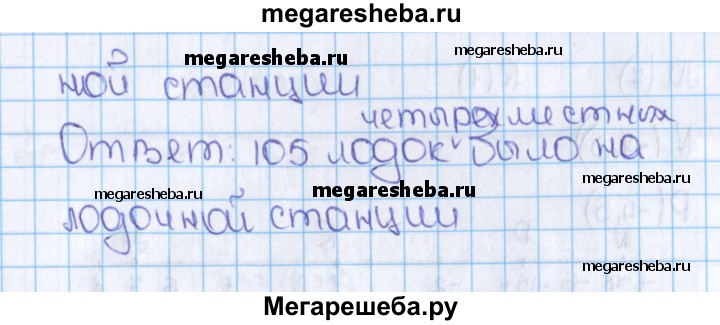 megaresheba.ru
megaresheba.ru
megaresheba.ru
ной станции
четырехместных
Ответ: 105 лодок было на
megaresheba.ru
megaresheba.ru
megaresheba.ru
лодочной станции
Мегарешеба.ру